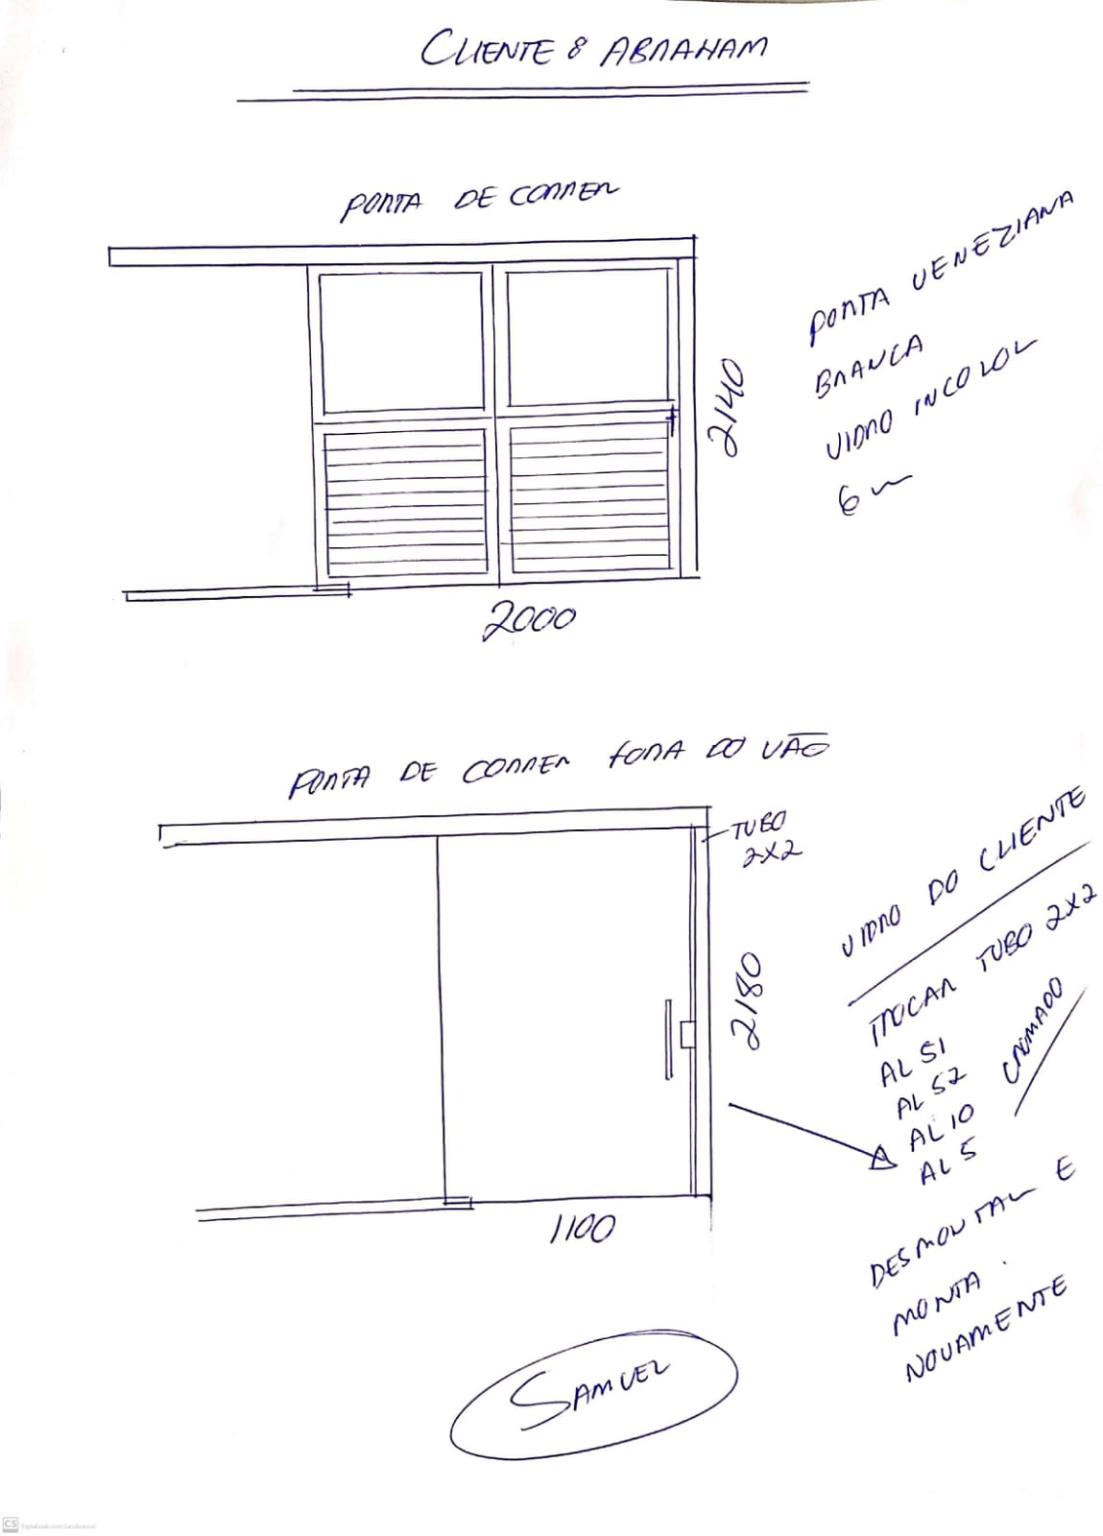 CLIENTE: ABRAHAM
PORTA DE CORRER
PORTA VENEZIANA
BRANCA
VIDRO INCOLOR
6 m
2140
2000
PORTA DE CORRER FORA DO VÃO
TUBO
2X2
2180
1100
VIDRO DO CLIENTE
TROCAR TUBO 2X2
AL 51
AL 52
AL 10
AL 5
CROMADO
DESMONTAR E
MONTA
NOVAMENTE
SAMUEL
CS